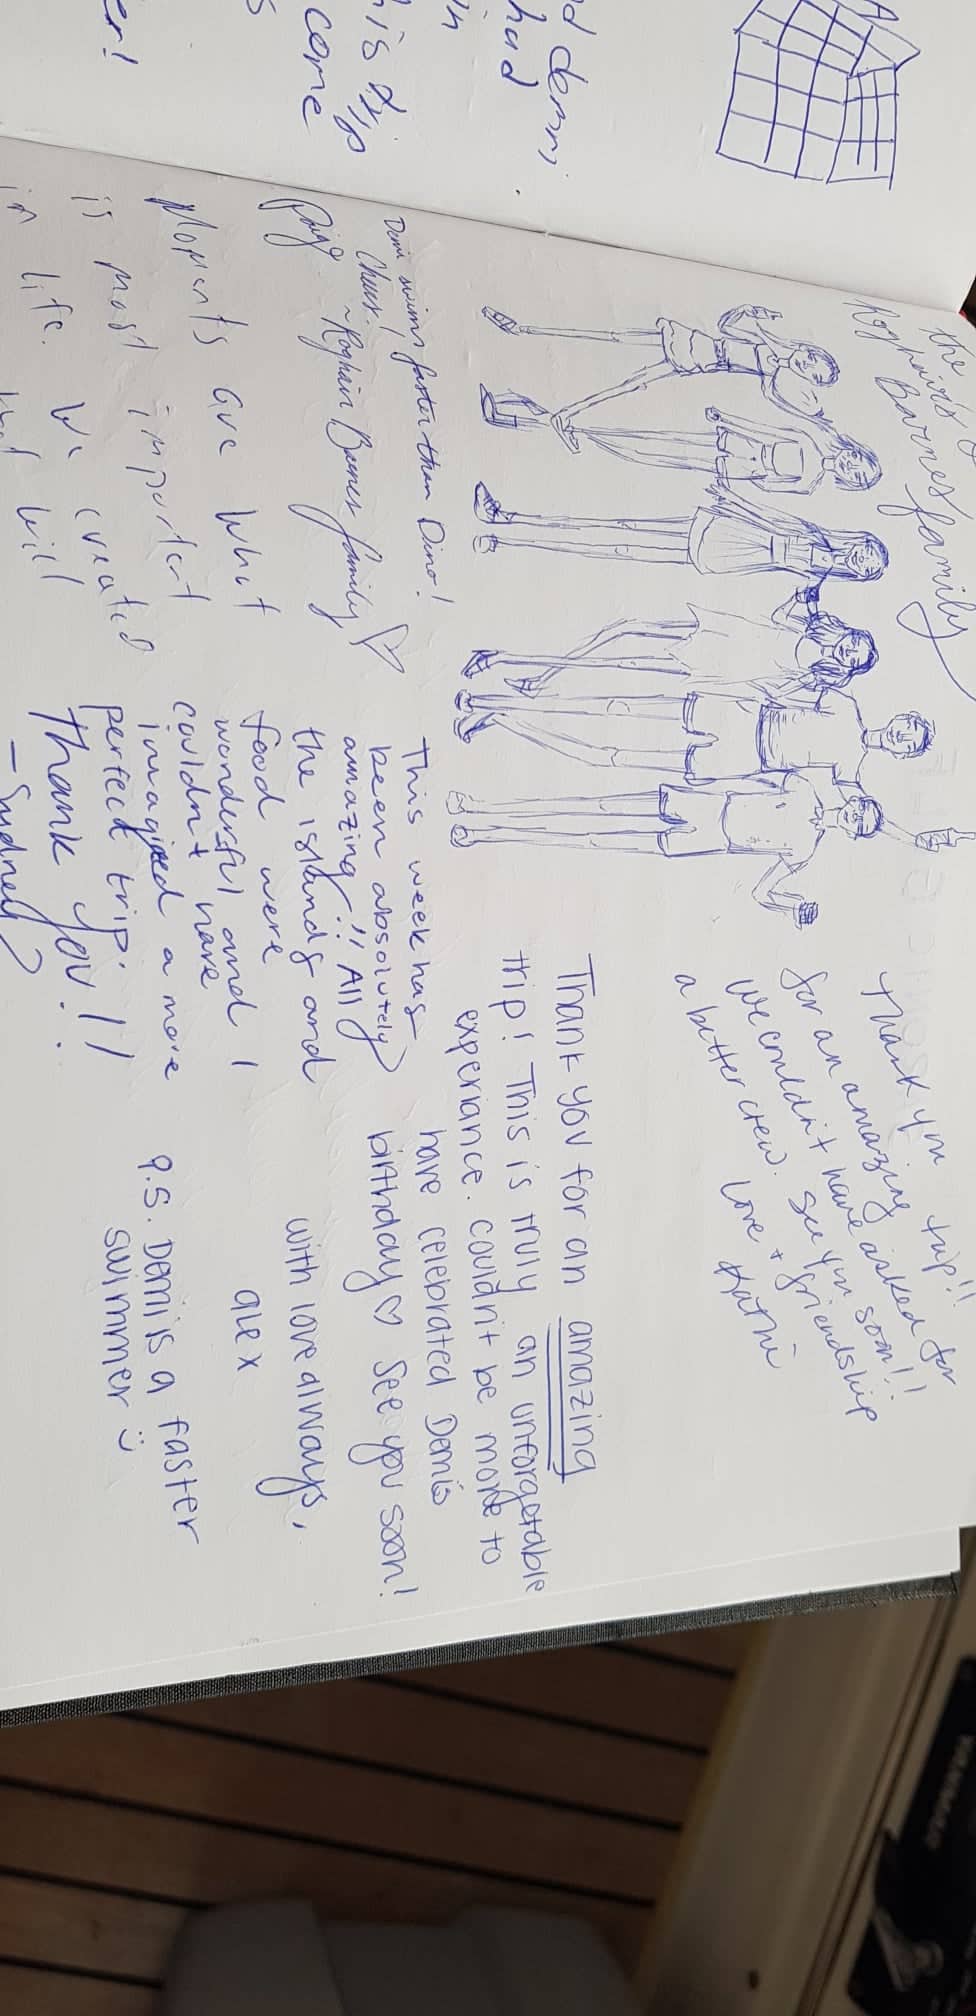 the
Barnes family
Thank you
trip!!
for an amazing
we couldn't have asked for
a better crew. See you soon!!
Love + friendship
Thank you for an amazing
trip! This is truly an unforgetable
experiance. couldn't be more to
have celebrated Demis
birthday♡ See you soon!
with love always,
alex
P.S. Demi is a faster
swimmer :)
Demi swims faster than Dino!
Cheers!
Barnes family ♡
Paige
Moments are what
is most important
in life. We created
will
This week has
been absolutely
amazing!! All
the islands and
food were
wonderful and I
couldn't have
imagined a more
perfect trip.
Thank you!!
- Sydney
nd demi,
had
in
his trip
come
s
er!